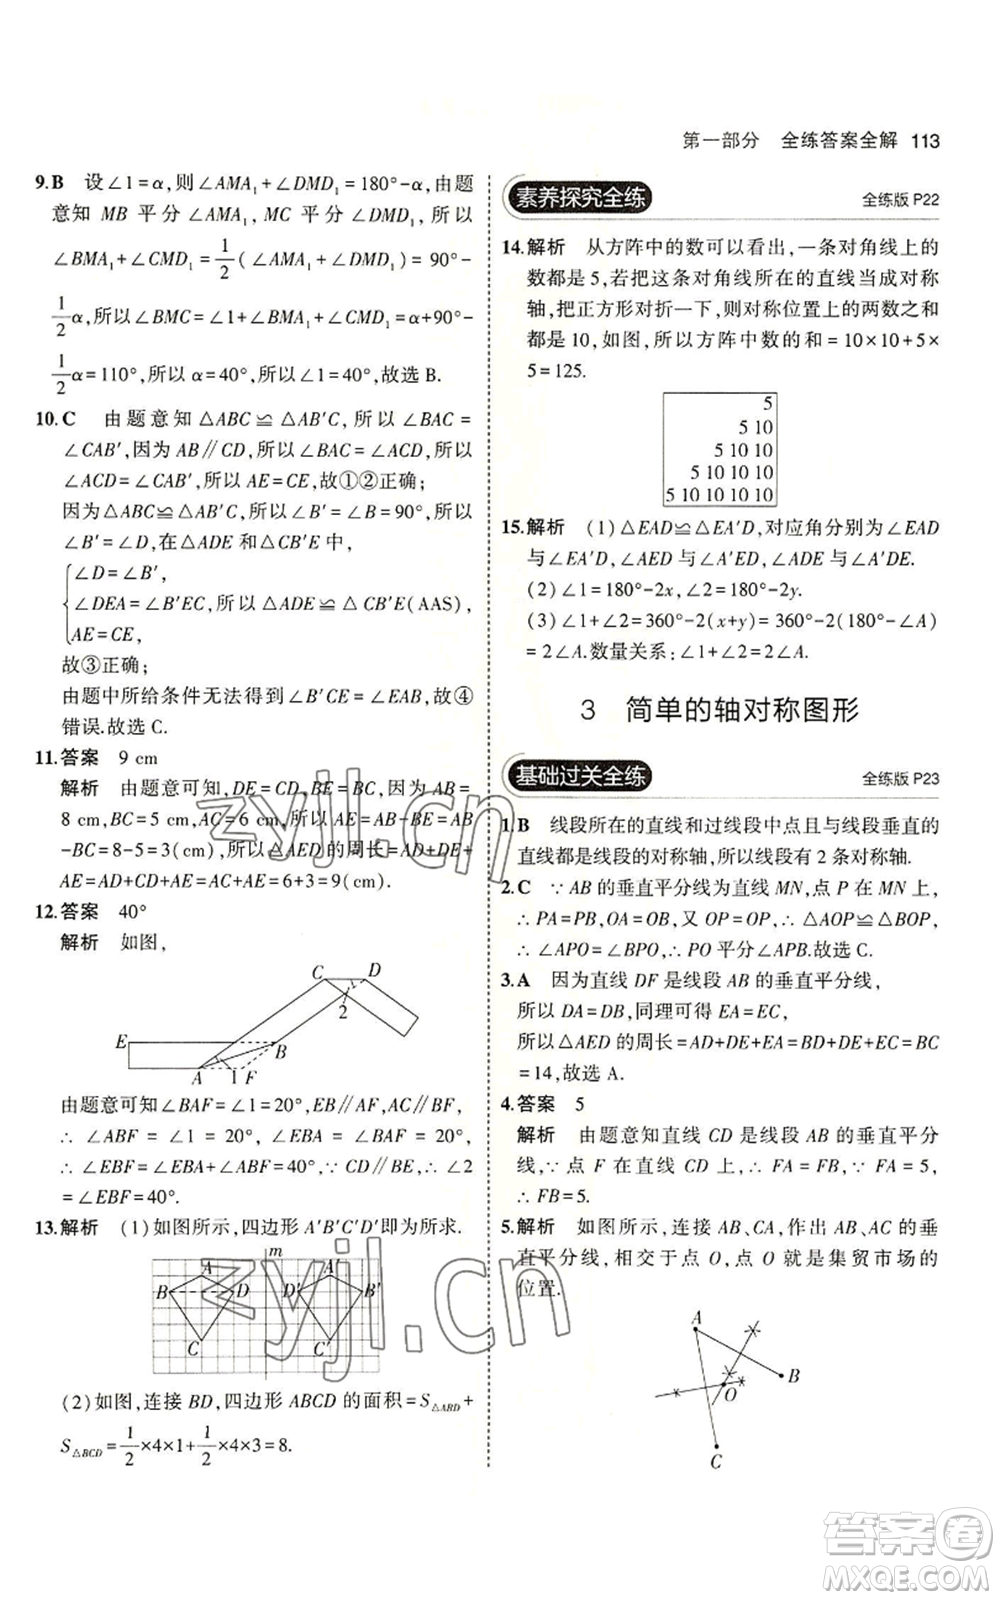 第一部分　全练答案全解　113
9.B　设∠1=α,则∠AMA₁+∠DMD₁=180°-α,由题
意知 MB 平分∠AMA₁,MC 平分∠DMD₁,所以
∠BMA₁+∠CMD₁=1/2(∠AMA₁+∠DMD₁)=90°-
1/2α,所以∠BMC=∠1+∠BMA₁+∠CMD₁=α+90°-
1/2α=110°,所以 α=40°,所以∠1=40°,故选 B.
10.C　由题意知△ABC≌△AB′C,所以∠BAC=
∠CAB′,因为 AB∥CD,所以∠BAC=∠ACD,所以
∠ACD=∠CAB′,所以 AE=CE,故①②正确;
因为△ABC≌△AB′C,所以∠B′=∠B=90°,所以
∠B′=∠D,在△ADE 和△CB′E 中,
∠D=∠B′,
∠DEA=∠B′EC,所以△ADE≌△CB′E(AAS),
AE=CE,
故③正确;
由题中所给条件无法得到∠B′CE=∠EAB,故④
错误.故选 C.
11.答案　9 cm
解析　由题意可知,DE=CD,BE=BC,因为 AB=
8 cm,BC=5 cm,AC=6 cm,所以 AE=AB-BE=AB
-BC=8-5=3(cm),所以△AED 的周长=AD+DE+
AE=AD+CD+AE=AC+AE=6+3=9(cm).
12.答案　40°
解析　如图,
C D
2
E
B
A 1 F
由题意可知∠BAF=∠1=20°,EB∥AF,AC∥BF,
∴∠ABF=∠1=20°,∠EBA=∠BAF=20°,
∴∠EBF=∠EBA+∠ABF=40°.∵CD∥BE,∴∠2
=∠EBF=40°.
13.解析　(1)如图所示,四边形 A′B′C′D′即为所求.
m
A A′
B D D′ B′
C C′
(2)如图,连接 BD,四边形 ABCD 的面积=S△ABD+
S△BCD=1/2×4×1+1/2×4×3=8.
素养探究全练　全练版 P22
14.解析　从方阵中的数可以看出,一条对角线上的
数都是 5,若把这条对角线所在的直线当成对称
轴,把正方形对折一下,则对称位置上的两数之和
都是 10,如图,所以方阵中数的和=10×10+5×
5=125.
5
5 10
5 10 10
5 10 10 10
5 10 10 10 10
15.解析　(1)△EAD≌△EA′D,对应角分别为∠EAD
与∠EA′D,∠AED 与∠A′ED,∠ADE 与∠A′DE.
(2)∠1=180°-2x,∠2=180°-2y.
(3)∠1+∠2=360°-2(x+y)=360°-2(180°-∠A)
=2∠A.数量关系:∠1+∠2=2∠A.
3　简单的轴对称图形
基础过关全练　全练版 P23
1.B　线段所在的直线和过线段中点且与线段垂直的
直线都是线段的对称轴,所以线段有 2 条对称轴.
2.C　∵AB 的垂直平分线为直线 MN,点 P 在 MN 上,
∴PA=PB,OA=OB,又 OP=OP,∴△AOP≌△BOP,
∴∠APO=∠BPO,∴PO 平分∠APB.故选 C.
3.A　因为直线 DF 是线段 AB 的垂直平分线,
所以 DA=DB,同理可得 EA=EC,
所以△AED 的周长=AD+DE+EA=BD+DE+EC=BC
=14,故选 A.
4.答案　5
解析　由题意知直线 CD 是线段 AB 的垂直平分
线,∵点 F 在直线 CD 上,∴FA=FB,∵FA=5,
∴FB=5.
5.解析　如图所示,连接 AB,CA,作出 AB,AC 的垂
直平分线,相交于点 O,点 O 就是集贸市场的
位置.
A
B
O
C
zyjl.cn
zyjl.cn
答案圈
MXQE.COM